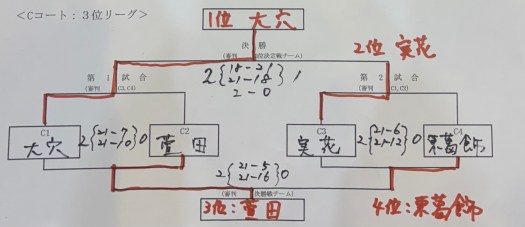 <Cコート：3位リーグ>
1位 大穴
決勝
(審判 3位決定戦チーム)
2位 実花
2 18-21 1
21-18
2-0
第1試合
(審判 C3,C4)
第2試合
(審判 C1,C2)
C1
大穴
2 21-7 0
21-10
C2
萱田
C3
実花
2 21-6 0
21-12
C4
東葛飾
2 21-5 0
21-16
(審判 決勝戦チーム)
3位：萱田
4位：東葛飾